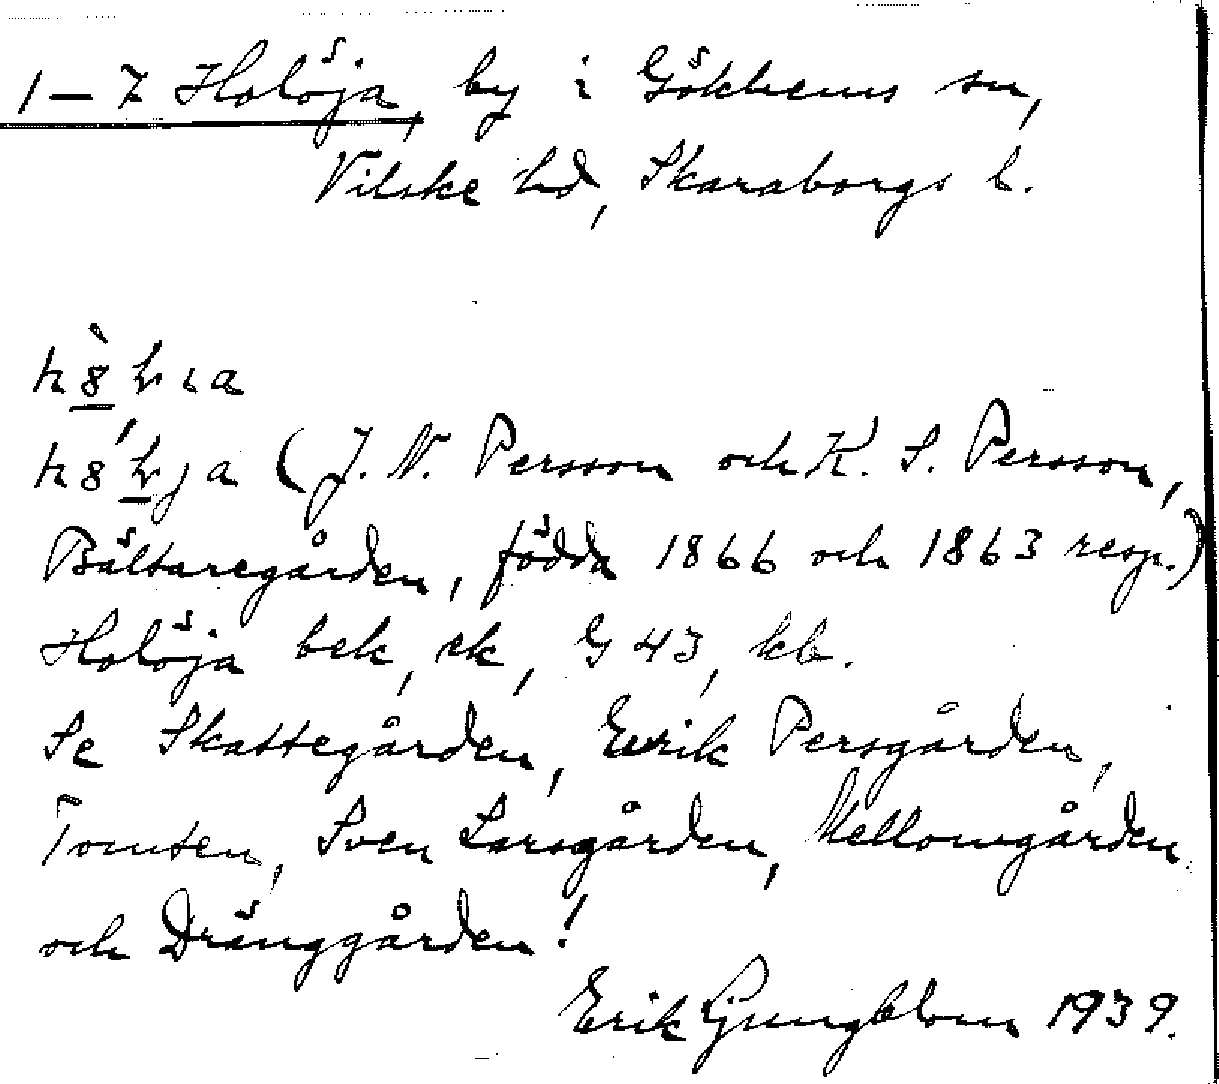 1–7 Holöja, by i Gökhems sn,
Vilske hd, Skaraborgs l.
(J. N. Persson och K. S. Persson,
Bältaregården, födda 1866 och 1863 resp.)
Holöja bek, ek, G 43, kb.
Se Skattegården, Erik Persgården,
Tomten, Sven Larsgården, Mellomgården
och Dränggården!
Erik Ljungblom 1939.